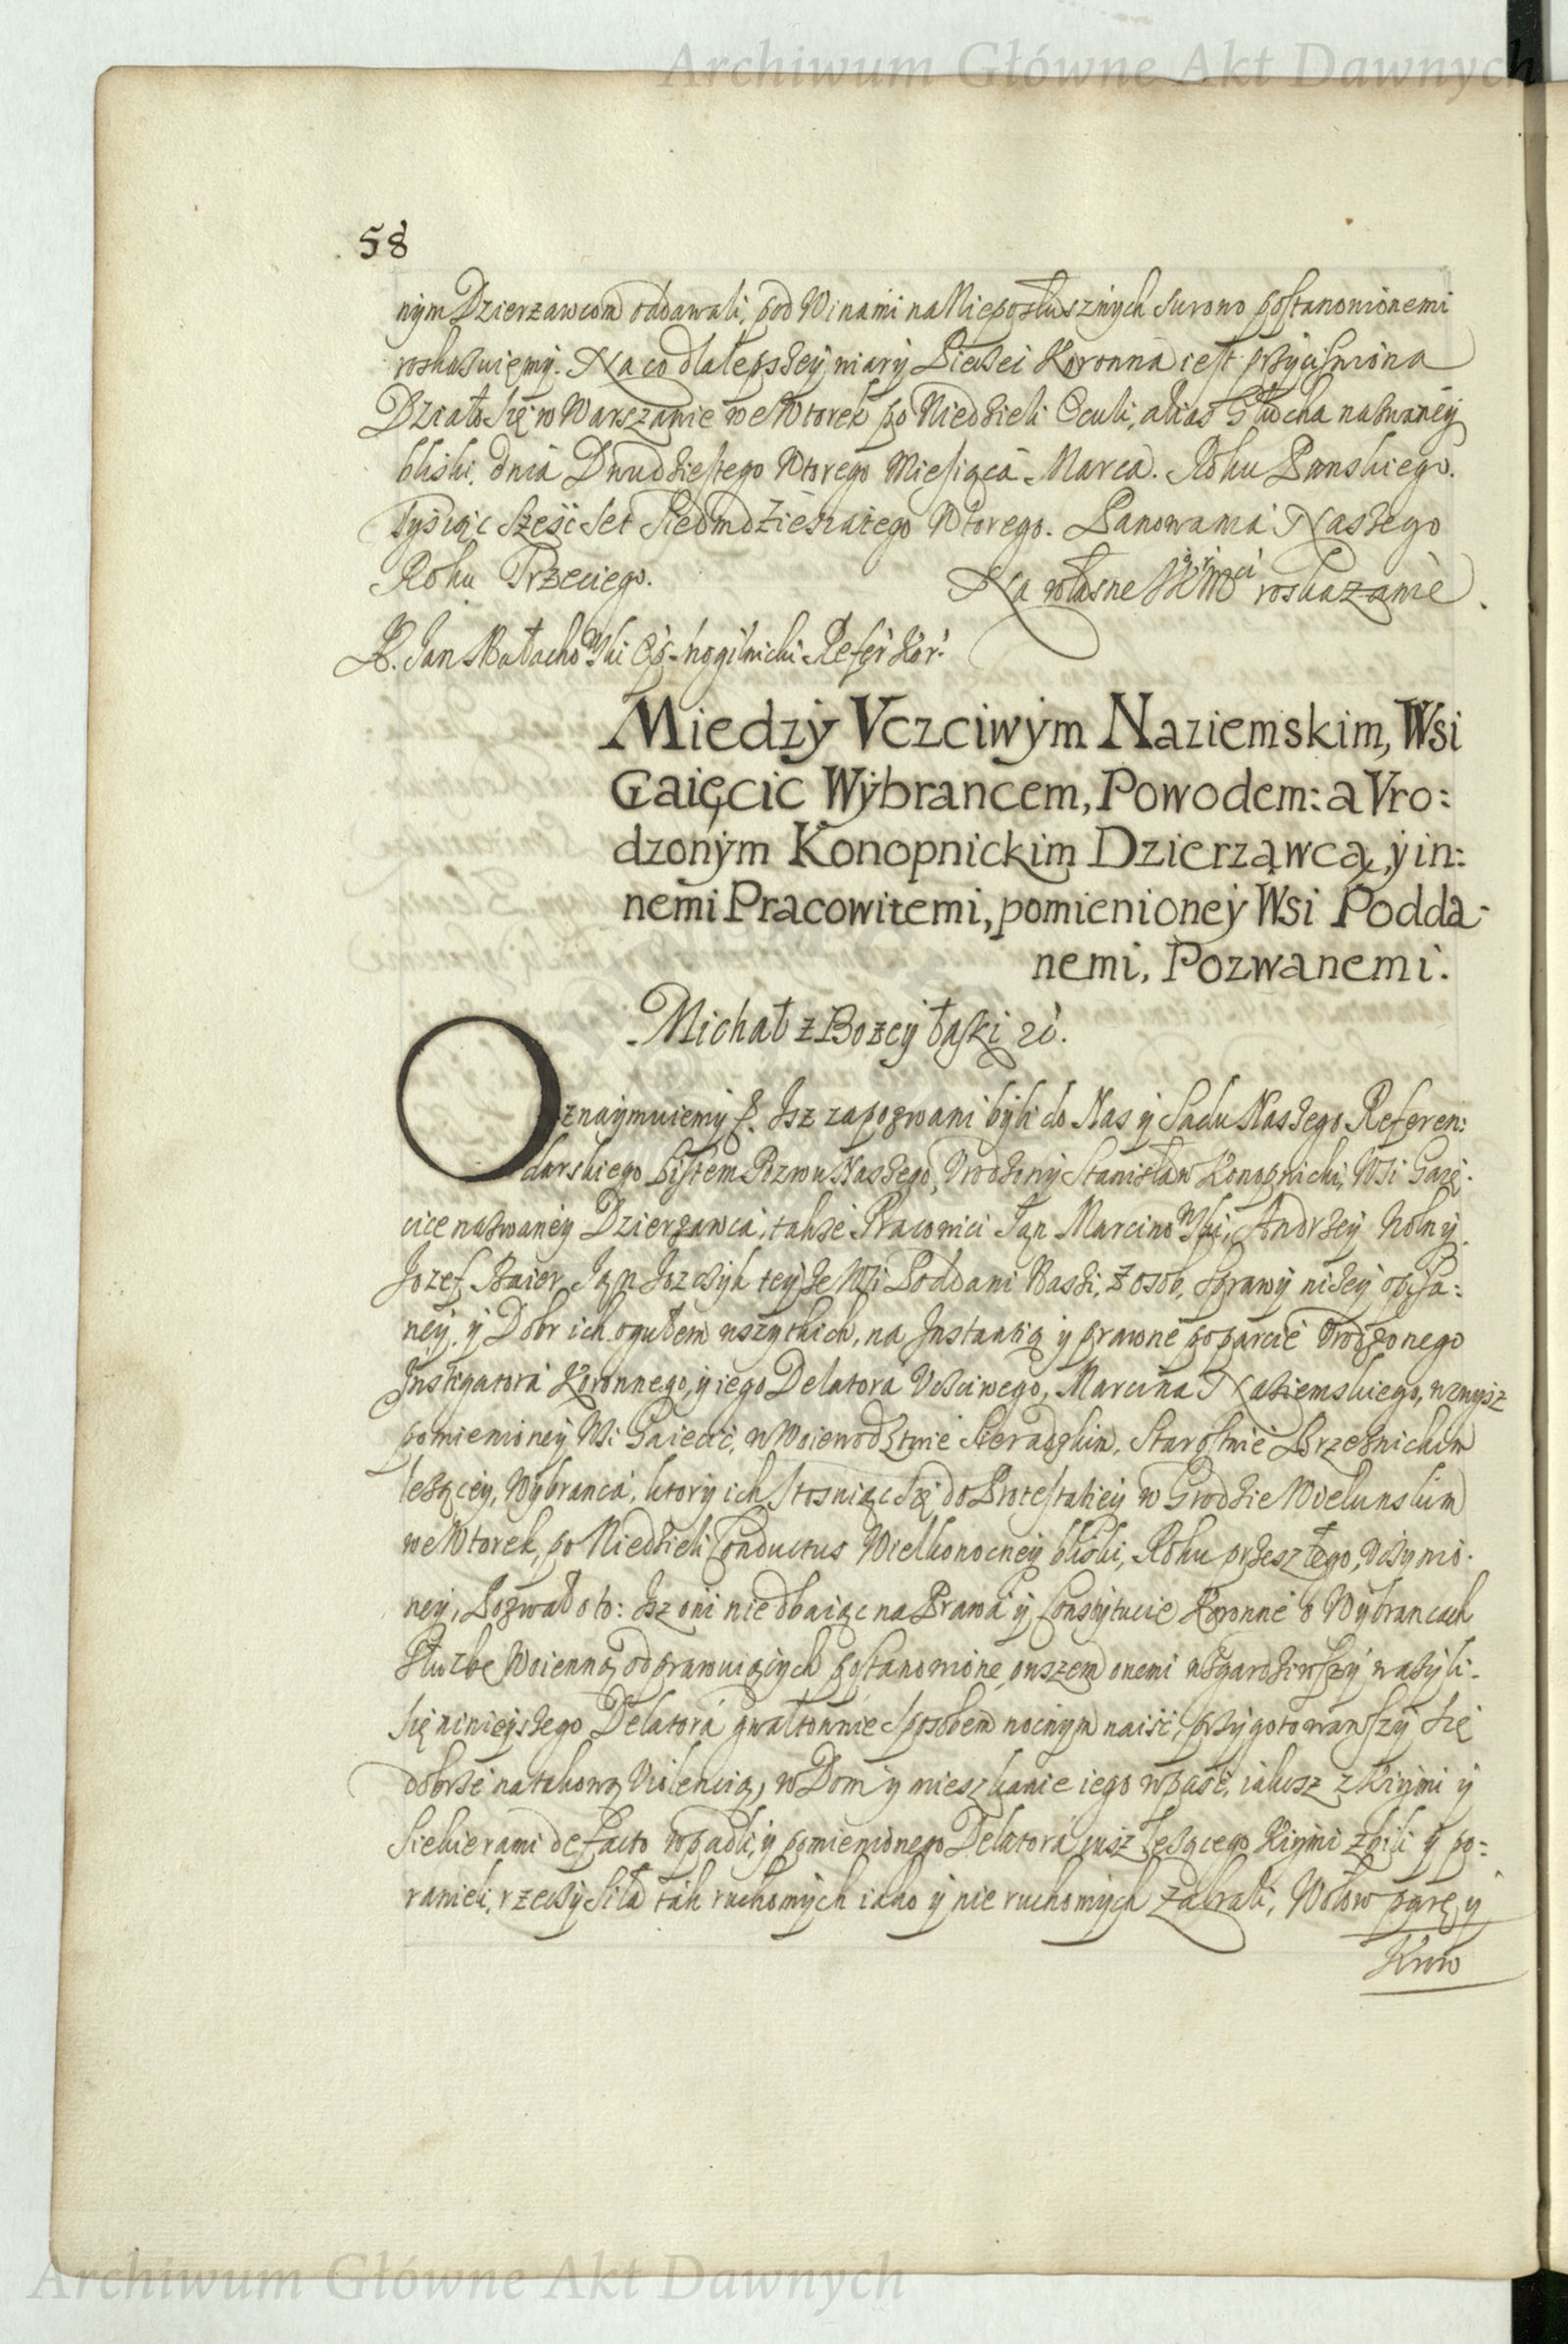 Archiwum Główne Akt Dawnych
58
nym Dzierzawcom oddawali, pod Winami na Nieposłusznych surowo postanowionemi
roskazuięmy. Na co dla lepszey wiary Pieczęć Koronna iest przyciśniona
Działo się w Warszawie we Wtorek po Niedzieli Oculi, alias Głucha nazwaney
bliski, dnia Dwudziestego Wtorego Miesiąca Marca. Roku Panskiego.
Tysiąc Sześć Set Siedmdziesiątego Wtorego. Panowania Naszego
Roku Trzeciego.
Na własne roskazanie.
Jan Małachowski Refer Kor.
Miedzÿ Vczciwÿm Naziemskim, Wsi
Gaięcic Wÿbrancem, Powodem: a Vro:
dzonÿm Konopnickim Dzierząwcą, ÿ in:
nemi Pracowitemi, pomienioneÿ Wsi Podda-
nemi, Pozwanemi.
Michał z Bozey łaski
Oznaymuiemy Isz zapozwani byli do Nas y Sądu Naszego Referen:
darskiego Listem Pozwu Naszego, Vrodzony Stanisław Konopnicki, Wsi Gaię-
cice nazwaney Dzierzawca, także Pracowici Jan Marcinowski, Andrzey Wolny
Jozef Baier, Jan Jozwyk teyże Wsi Poddani Naszi, z osob, sprawy niżey opisa:
ney y Dobr ich ogułem wszytkich, na Instantią y prawne poparcie Vrodzonego
Instigatora Koronnego, y iego Delatora Vczciwego, Marcina Naziemskiego, wzwysz
pomienioney Wsi Gaiecic, w Woiewodztwie Sieradzkim, Starostwie Brzeznickim
leżącey, Wybranca, ktory ich stosuiąc się do Protestatiey w Grodzie Wielunskim
we Wtorek, po Niedzieli Conductus Wielkonocney bliski, Roku przeszłego, uczynio-
ney, Pozwał o to: Isz oni nie dbaiąc na Prawa y Constytucie Koronne o Wybrancach
Służbę Woienną odprawuiących postanowione, owszem onemi wzgardziwszy ważyli-
się ninieyszego Delatora gwałtownie sposobem nocnym naiść, przygotowawszy się
dobrze na takową Violencią, w Dom y mieszkanie iego wpaść, iakosz z Kiymi y
Siekierami de facto wpadli, y pomienionego Delatora iusz leżącego Kiymi zbili y po:
ranieli, rzeczy siła tak ruchomych iako y nie ruchomych zabrali, Wołow parę y
Krow
Archiwum Główne Akt Dawnych